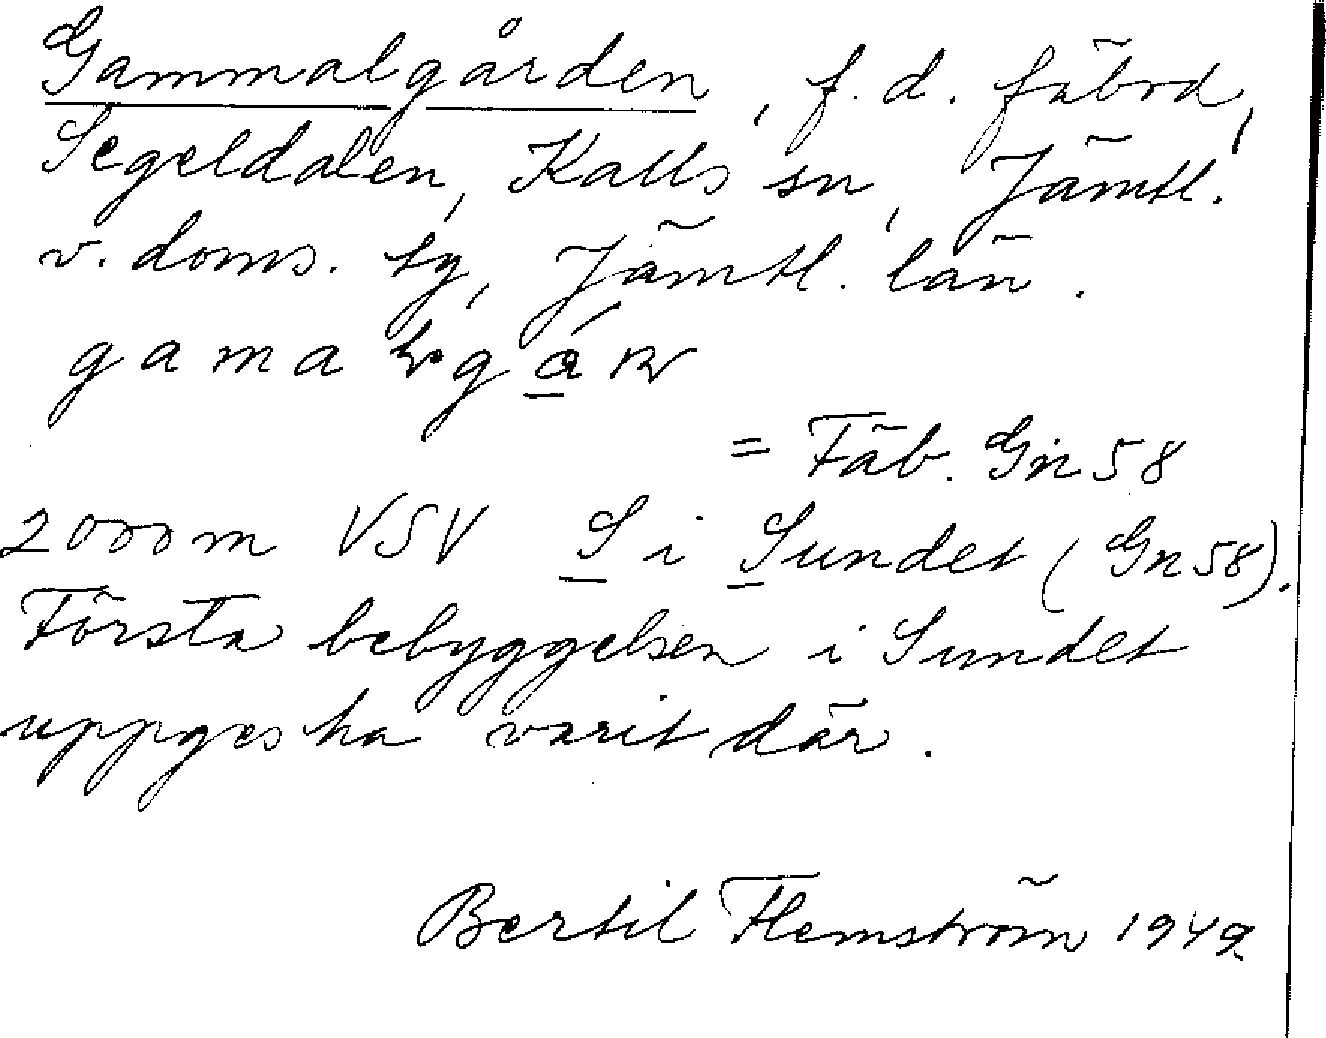 Gammalgården, f.d. fäbod,
Segeldalen, Kalls sn, Jämtl.
v. doms. tg, Jämtl. län.
gama
= Fäb. Gn 58
2000 m VSV S i Sundet (Gn 58).
Första bebyggelsen i Sundet
uppges ha varit där.
Bertil Flemström 1949.